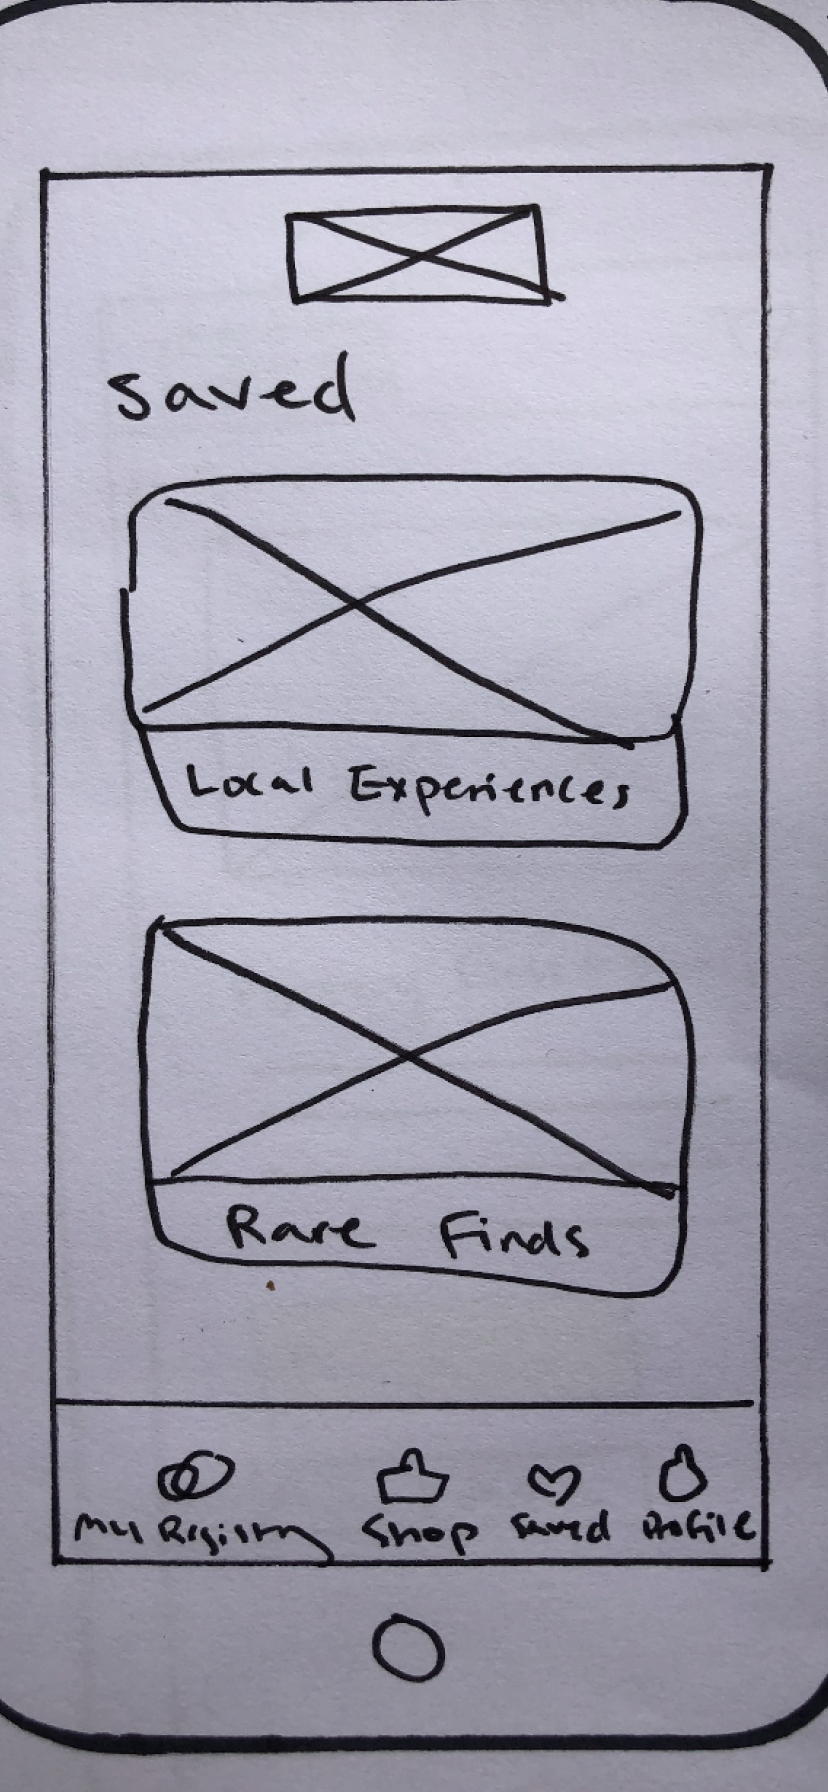 Saved
Local Experiences
Rare Finds
My Registry Shop Saved Profile